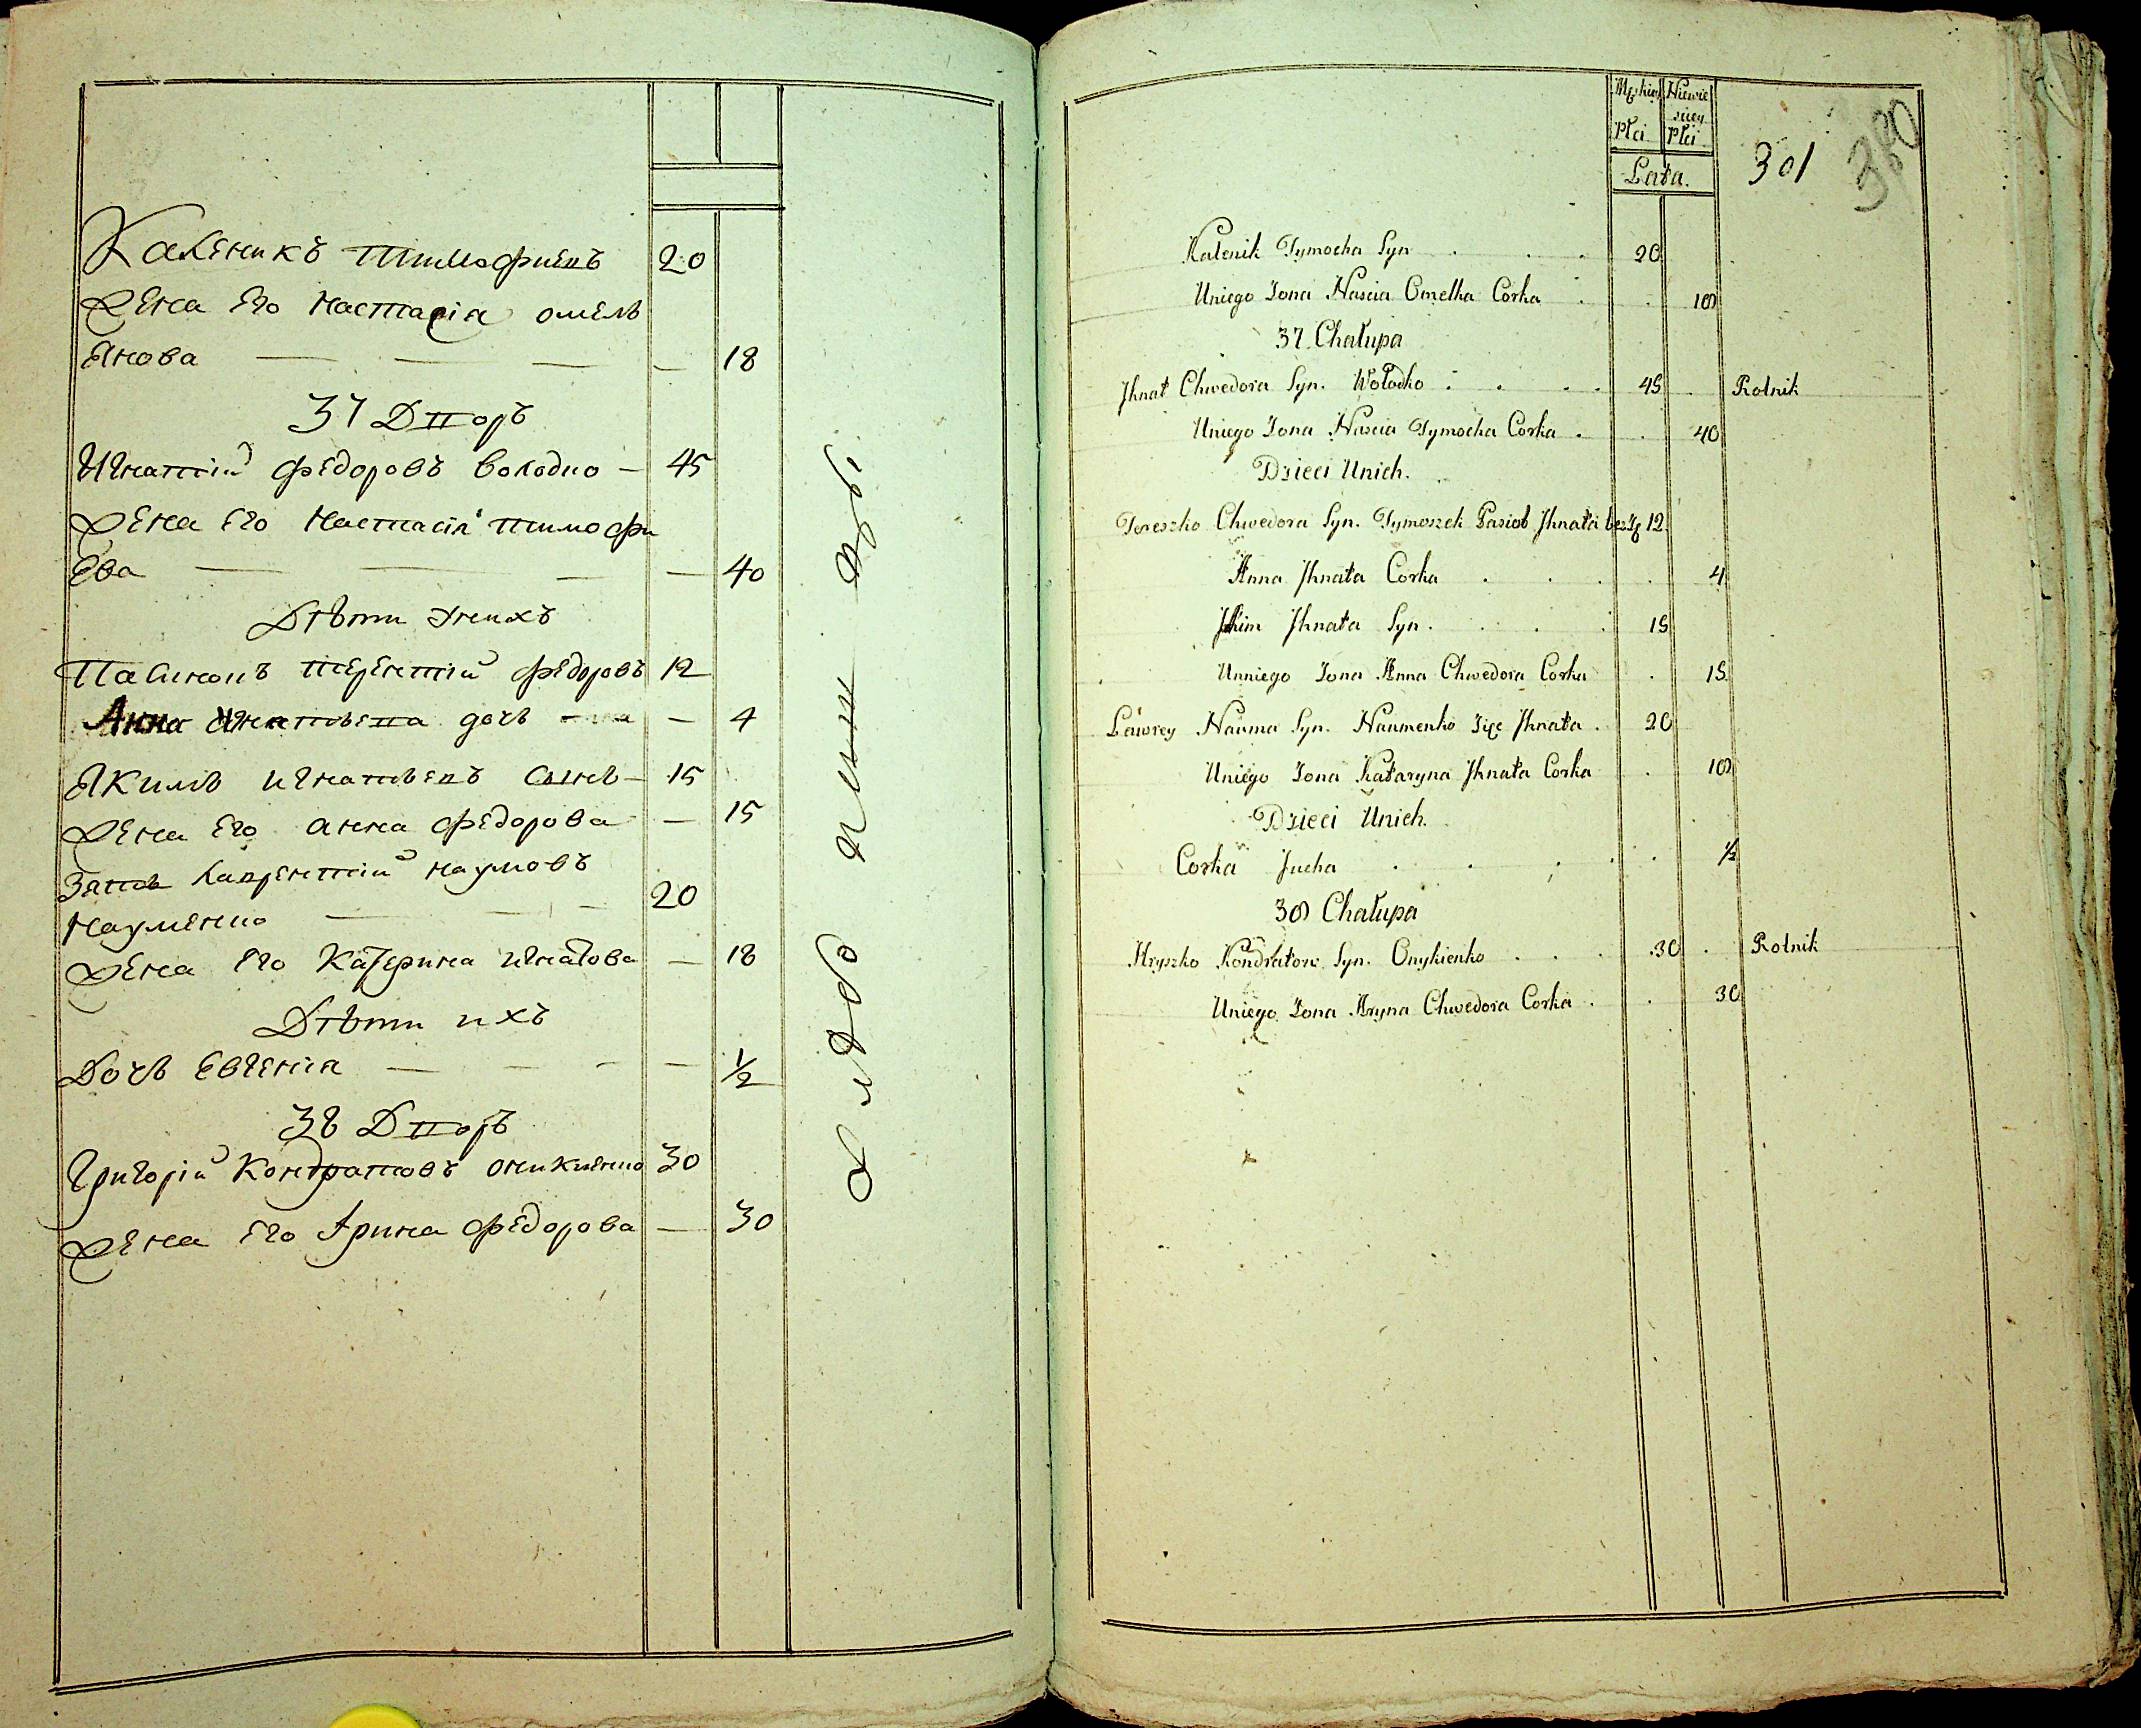 Каленикъ тимофиевъ 20
Жена Его настасія омель
Янова — — — — 18
37 Дворъ
Игнатій федоровъ володко — 45
Жена Его настасія тимофи
Ева — — — — 40
Дѣти унихъ
Пасинокъ терентій федоровъ 12
Анна игнатьева дочь — 4
Якимъ игнатьевъ сынъ — 15
Жена Его анна федорова — 15
Зать лаврентій наумовъ
Науменко — — — 20
Жена Его Катерина игнатова — 18
Дѣти ихъ
Дочь Евгенія — — — — ½
38 Дворъ
Григорій Кондратовъ оникиенко 30
Жена Его Арина федорова — 30
Męskiey Płci
Niewieściey Płci
Lata.
301
380
Kalenik Tymocha Syn . . . 20
Uniego Żona Nascia Omelka Corka . . 18
37 Chałupa
Jhnat Chwedora Syn. Wołodko . . . . 45 . Rolnik
Uniego Żona Nascia Tymocha Corka . . 40
Dzieci Unich.
Tereszko Chwedora Syn. Tymoszek Pasiob Jhnata 12
Anna Jhnata Corka . . . . 4
Jakim Jhnata Syn . . . . 15
Unniego Żona Anna Chwedora Corka . 15
Ławrey Nauma Syn. Naumenko Zięc Jhnata . 20
Uniego Żona Kataryna Jhnata Corka . 18
Dzieci Unich.
Corka Jucha . . . . . ½
38 Chałupa
Hryszko Kondratow Syn. Onykienko . . . 30 . Rolnik
Uniego Żona Aryna Chwedora Corka . . 30